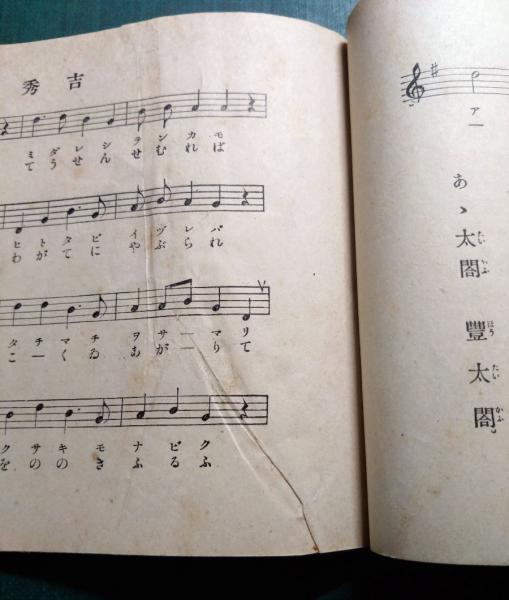 秀吉
ミダレシテンカモ
てうせんせむれば
ヒトタビイヅレバ
わがてにやぶられ
タチマチヲサーマリ
こーくゐあがーりて
クサキモナビク
をののきふるふ
アー
あゝ太閤 豐太閤
たいかふ ほうたいかふ